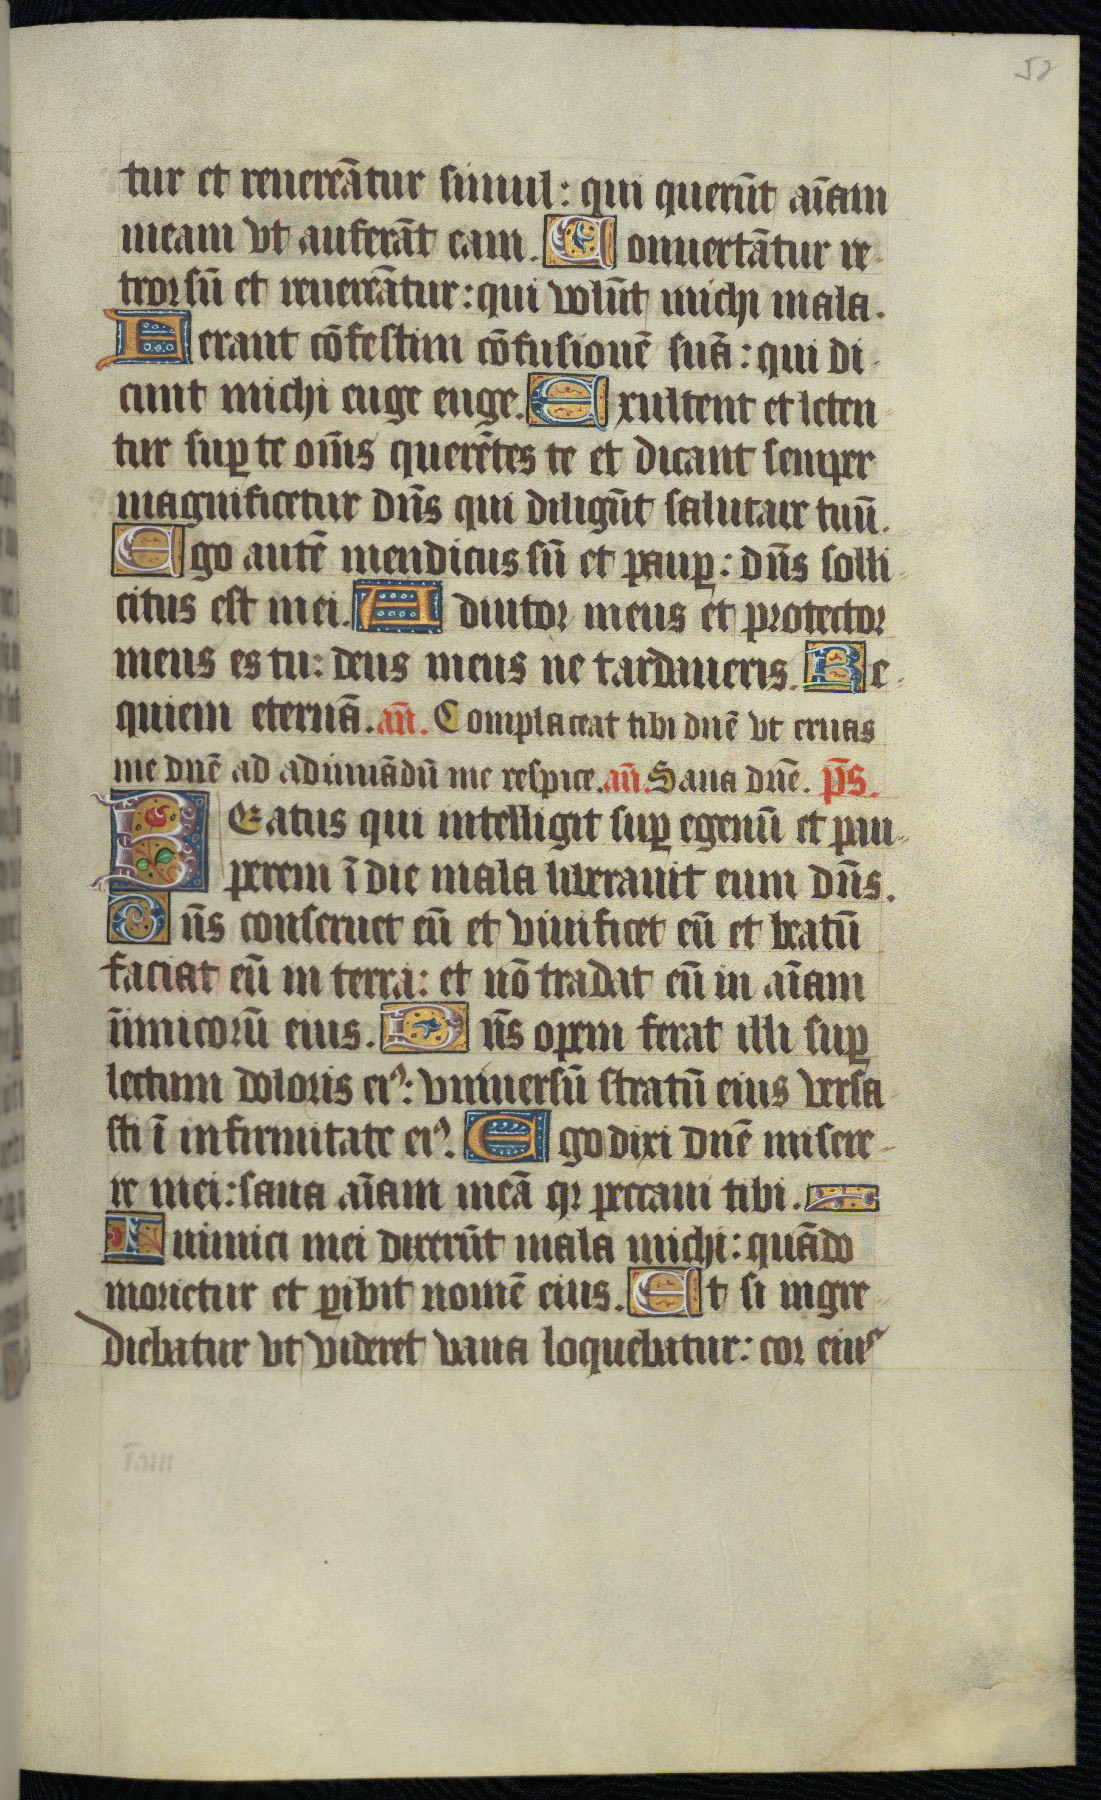 52
tur et reuereātur simul: qui querūt aīam
meam vt auferāt eam. Conuertātur re-
trorsū et reuereātur: qui volūt michi mala.
Ferant cōfestim cōfusionē suā: qui di-
cunt michi euge euge. Exultent et leten
tur suꝑ te om̄s querētes te et dicant semper
magnificetur dn̄s qui diligūt salutare tuū.
Ego autē mendicus sū et pauꝑ: dn̄s solli-
citus est mei. Adiutor meus et protector
meus es tu: deus meus ne tardaueris. Re-
quiem eternā. an̄. Complaceat tibi dn̄e vt eruas
me dn̄e ad adiuuādū me respice. an̄. Sana dn̄e. p̄s.
BEatus qui intelligit suꝑ egenū et pau-
perem ī die mala liberauit eum dn̄s.
Dn̄s conseruet eū et viuificet eū et beatū
faciat eū in terra: et nō tradat eū in aīam
īimicorū eius. Dn̄s opem ferat illi suꝑ
lectum doloris eiꝰ: vniuersū stratū eius versa-
sti ī infirmitate eiꝰ. Ego dixi dn̄e misere-
re mei: sana aīam meā qr peccaui tibi.
Inimici mei dixerūt mala michi: quādo
morietur et ꝑibit nomē eius. Et si ingre-
diebatur vt videret vana loquebatur: cor eiuˢ